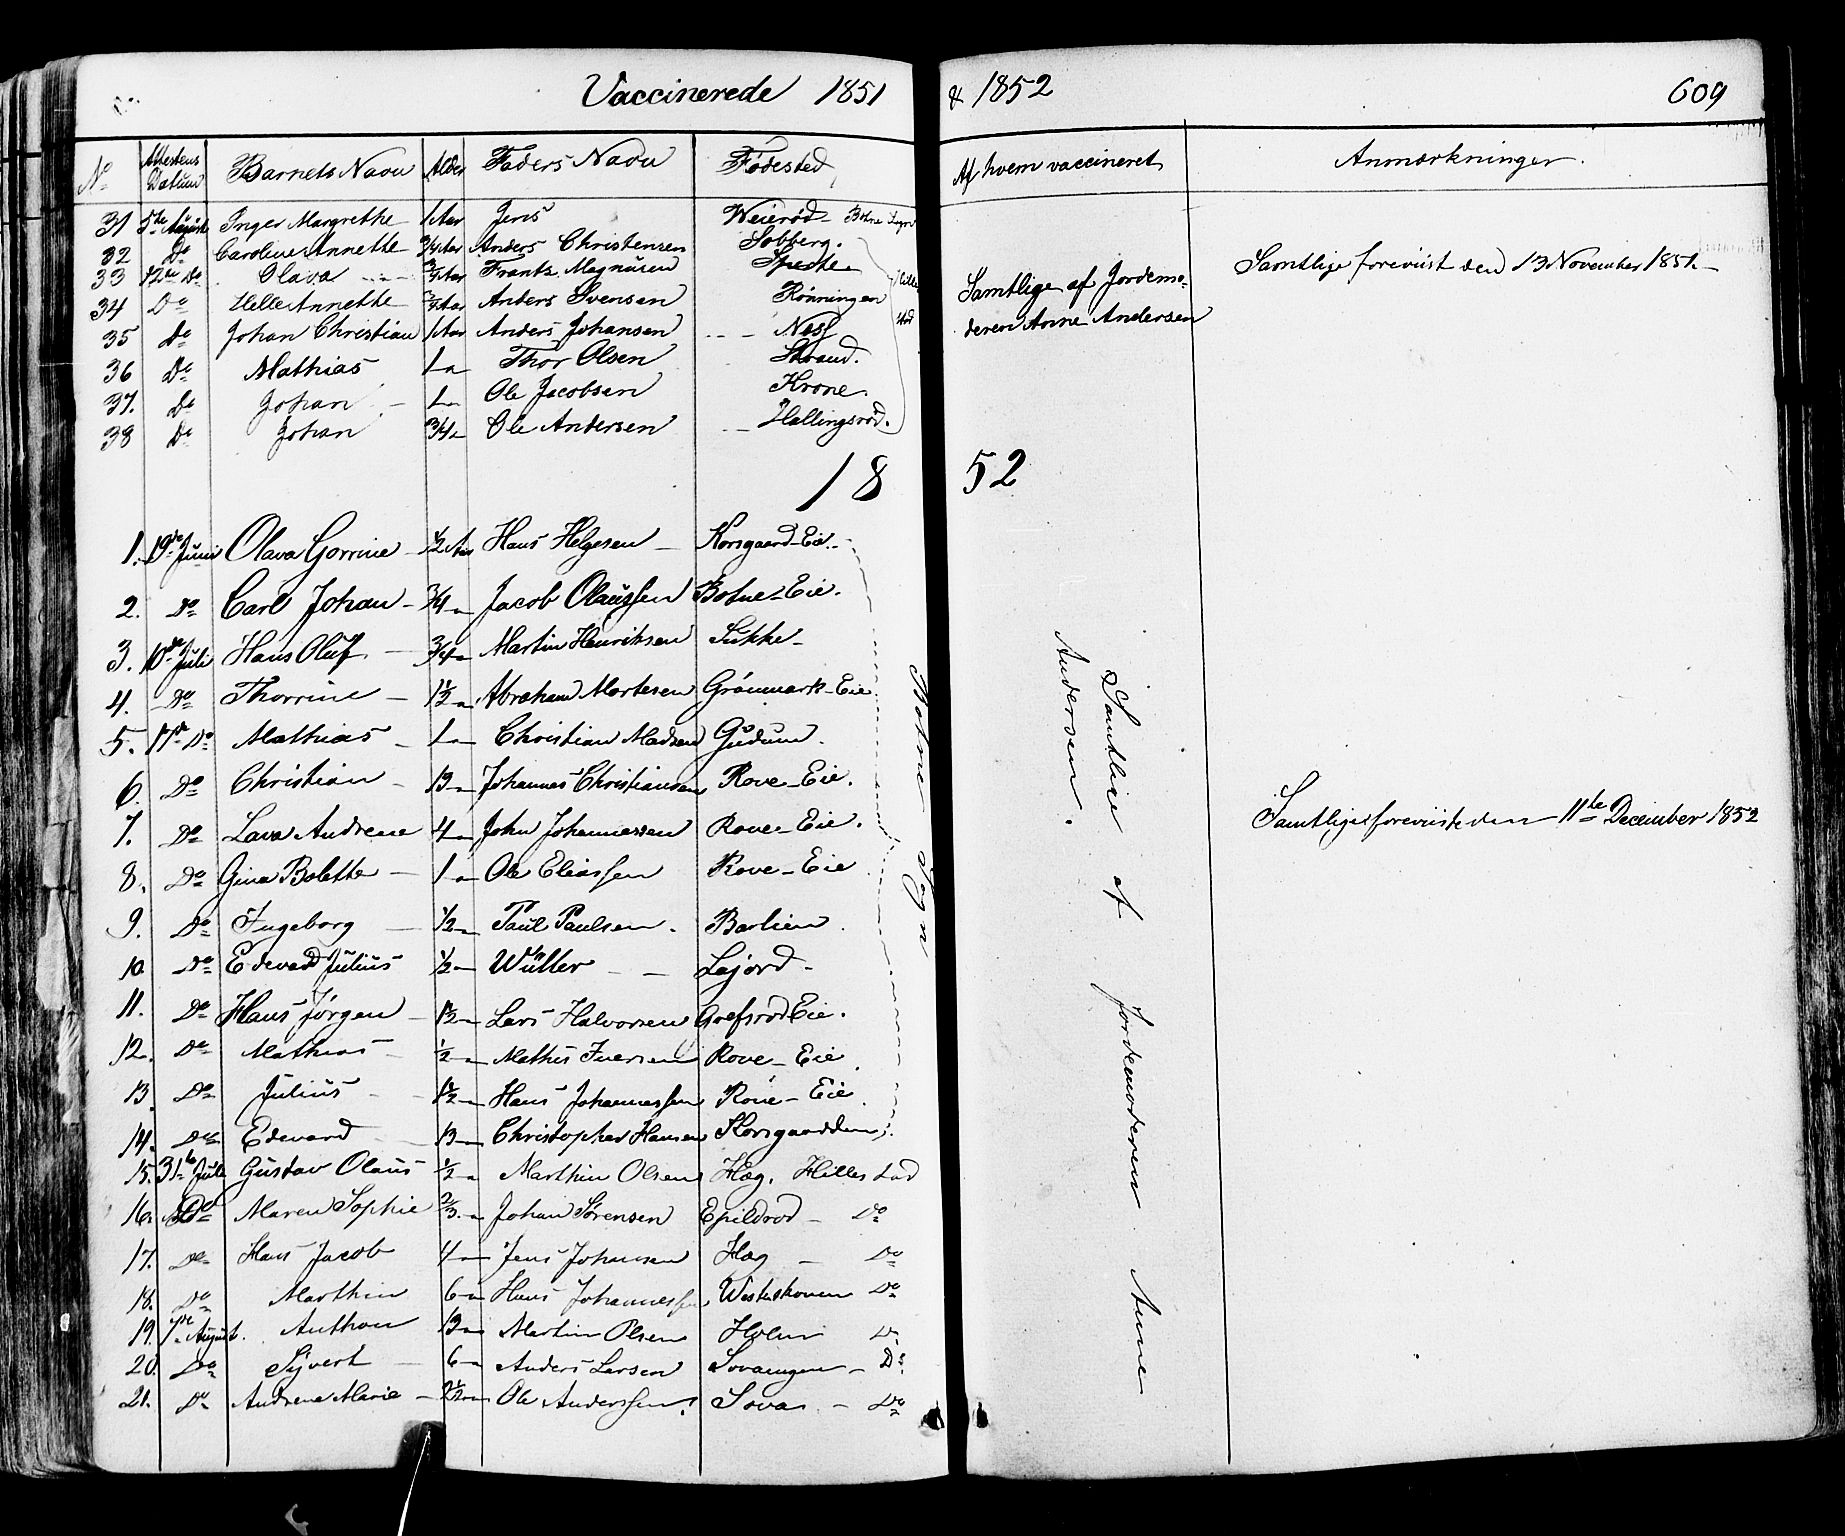 Vaccinerede 1851 & 1852 609
No Attestens Datum Barnets Navn Alder Faders Navn Fødested Af hvem vaccineret Anmærkninger.
31 5te August Inger Margrethe 1 Aar Jens Weierød Botne Sogn
32 Do Caroline Annette 3/4 Aar Anders Christensen Solberg.
33 12te Do Olava 3/4 Aar Frantz Magnüsen
34 Do Helle Annette Aar Anders Svensen Rönningen
35 Do Johan Christian 1 Aar Anders Johansen Næss
36 Do Mathias 1 " Thor Olsen Strand.
37. Do Johan 1 " Ole Jacobsen Krone.
38 Do Johan 3/4 " Ole Andersen Hallingsrød.
Hillestad
Samtlige af Jordemo-
deren Anne Andersen
Samtlige foreviist den 13 November 1851
1852
1. 19de Juni Olava Gorrine 1/2 Aar Hans Helgesen Korsgaard-Eie
2. Do Carl Johan 3/4 " Jacob Olaüssen Botne-Eie.
3. 10de Juli Hans Oluf 3/4 " Martin Henriksen Sükke
4. Do Thorrine 1 1/2 " Abraham Mortesen Grönmark-Eie
5. 17de Do Mathias 1 " Christian Madsen Güdum.
6. Do Christian 13 " Johannes Christiansen Rove-Eie.
7. Do Lava Andrene 4 " John Johannessen Rove-Eie.
8. Do Gina Bolette 1 " Ole Eliassen Rove-Eie
9. Do Ingeborg 1/2 " Paul Paulsen. Barlien.
10 Do Edevard Julius 1/2 " Wüller Lejord
11. Do Hans Jörgen 1 1/2 " Lars Halvorsen Grefsrød Eie.
12. Do Mathias 1/2 " Mathis Iversen Rove-Eie
13. Do Julius 1 1/2 " Hans Johannessen Rove-Eie
14. Do Edevard 13 " Christopher Hansen Korsgaarden
15. 31te Juli Gustav Olaus 1/2 " Marthin Olsen Hæg, Hillestad
16. Do Maren Sophie 2/3 " Johan Sørensen Epildrød Do
17. Do Hans Jacob 4 " Jens Johansen Hæg Do
18. Do Marthin 6 " Hans Johannessen Westskoven Do
19. 7de August. Anthon 13 " Martin Olsen Holm Do
20. Do Syvert 6 " Anders Larsen Do
21. Do Andrene Marie 2 1/2 " Ole Anderssen. Sova Do
Botne Sogn
Samtlige af Jordemoderen Anne
Andersen.
Samtlige foreviiste den 11te December 1852